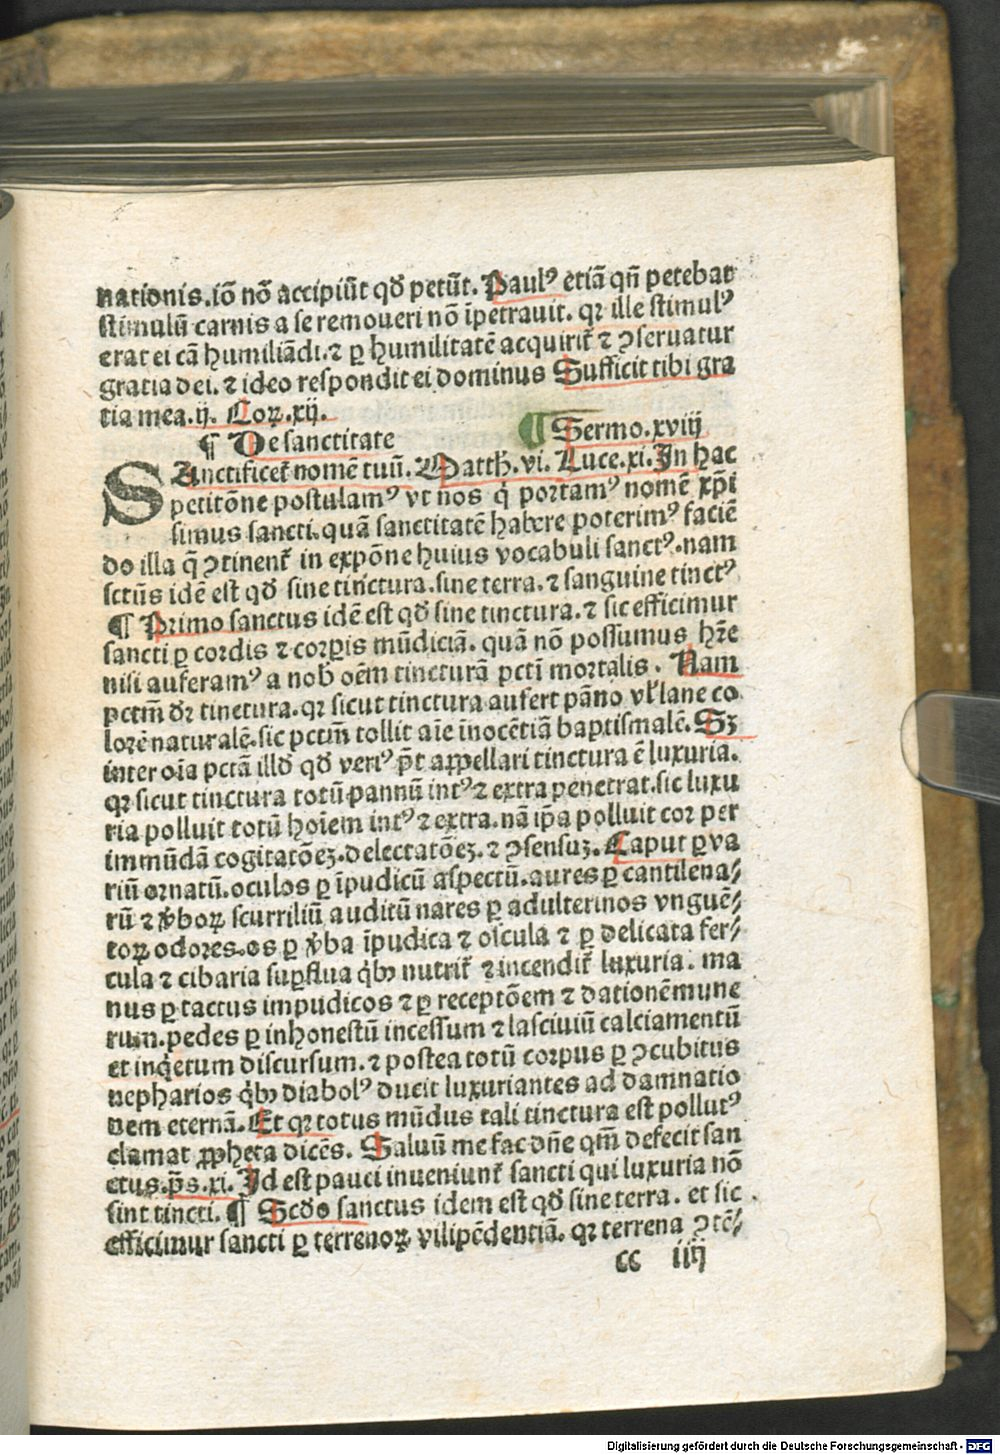 nationis.iõ nõ accipiũt qď petũt. Paulꝰ etiã qñ petebat
stimulũ carnis a se remoueri nõ ĩpetrauit. qꝛ ille stimulꝰ
erat ei cã humiliãdi.⁊ ꝑ humilitatẽ acquirit̃ ⁊ ꝯseruatur
gratia dei. ⁊ ideo respondit ei dominus Sufficit tibi gra
tia mea.ij. Coꝝ.xij.
¶ De sanctitate ¶ Sermo.xviij
SAnctificet̃ nomẽ tuũ. Matth̃.vi. Luce.xi. In hac
petitõne postulamꝰ vt nos q̇ portamꝰ nomẽ xp̃i
simus sancti. quã sanctitatẽ habere poterimꝰ faciẽ
do illa q̃ ꝯtinent̃ in expõne huius vocabuli sanctꝰ. nam
sctũs idẽ est qď sine tinctura.sine terra.⁊ sanguine tinctꝰ
¶ Primo sanctus idẽ est qď sine tinctura.⁊ sic efficimur
sancti ꝑ cordis ⁊ corꝑis mũdiciã. quã nõ possumus hr̃e
nisi auferamꝰ a nob̃ oẽm tincturã pctĩ mortalis. Nam
pctm̃ dr̃ tinctura. qꝛ sicut tinctura aufert pãno vł lane co
lorẽ naturalẽ.sic pctm̃ tollit aĩe ĩnocẽtiã baptismalẽ. Sꝫ
inter oĩa pctã illď qď veriꝰ p̃t appellari tinctura ẽ luxuria.
qꝛ sicut tinctura totũ pannũ intꝰ ⁊ extra penetrat.sic luxu
ria polluit totũ hoĩem intꝰ ⁊ extra. nã ip̃a polluit cor per
immũdã cogitatõeꝫ.delectatõeꝫ. ⁊ ꝯsensuꝫ. Caput ꝑ va
riũ ornatũ.oculos ꝑ ĩpudicũ aspectũ.aures ꝑ cantilena⸗
rũ ⁊ v̾boꝝ scurriliũ auditũ nares ꝑ adulterinos vnguẽ⸗
toꝝ odores.os ꝑ v̾ba ĩpudica ⁊ oscula ⁊ ꝑ delicata fer⸗
cula ⁊ cibaria suꝑflua q̇bꝰ nutrit̃ ⁊ incendit̃ luxuria. ma
nus ꝑ tactus impudicos ⁊ ꝑ receptõem ⁊ dationẽ mune
rum.pedes ꝑ inhonestũ incessum ⁊ lasciuiũ calciamentũ
et inq̇etum discursum. ⁊ postea totũ corpus ꝑ ꝯcubitus
nepharios q̇bꝰ diabolꝰ ducit luxuriantes ad damnatio
nem eternã. Et qꝛ totus mũdus tali tinctura est pollutꝰ
clamat ꝓpheta dicẽs. Saluũ me fac dñe qm̃ defecit san
ctus.p̃s.xi. Id est pauci inueniunt̃ sancti qui luxuria nõ
sint tincti. ¶ Scďo sanctus idem est qď sine terra. et sic
efficimur sancti ꝑ terrenoꝝ vilipẽdentiã. qꝛ terrena ꝯtẽ⸗
cc iiij
Digitalisierung gefördert durch die Deutsche Forschungsgemeinschaft - DFG